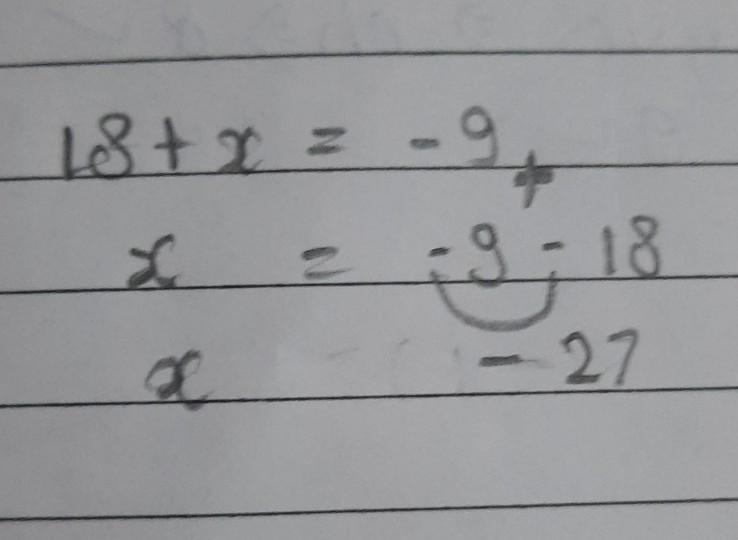 18 + x = -9
+
x = -9 - 18
x - 27